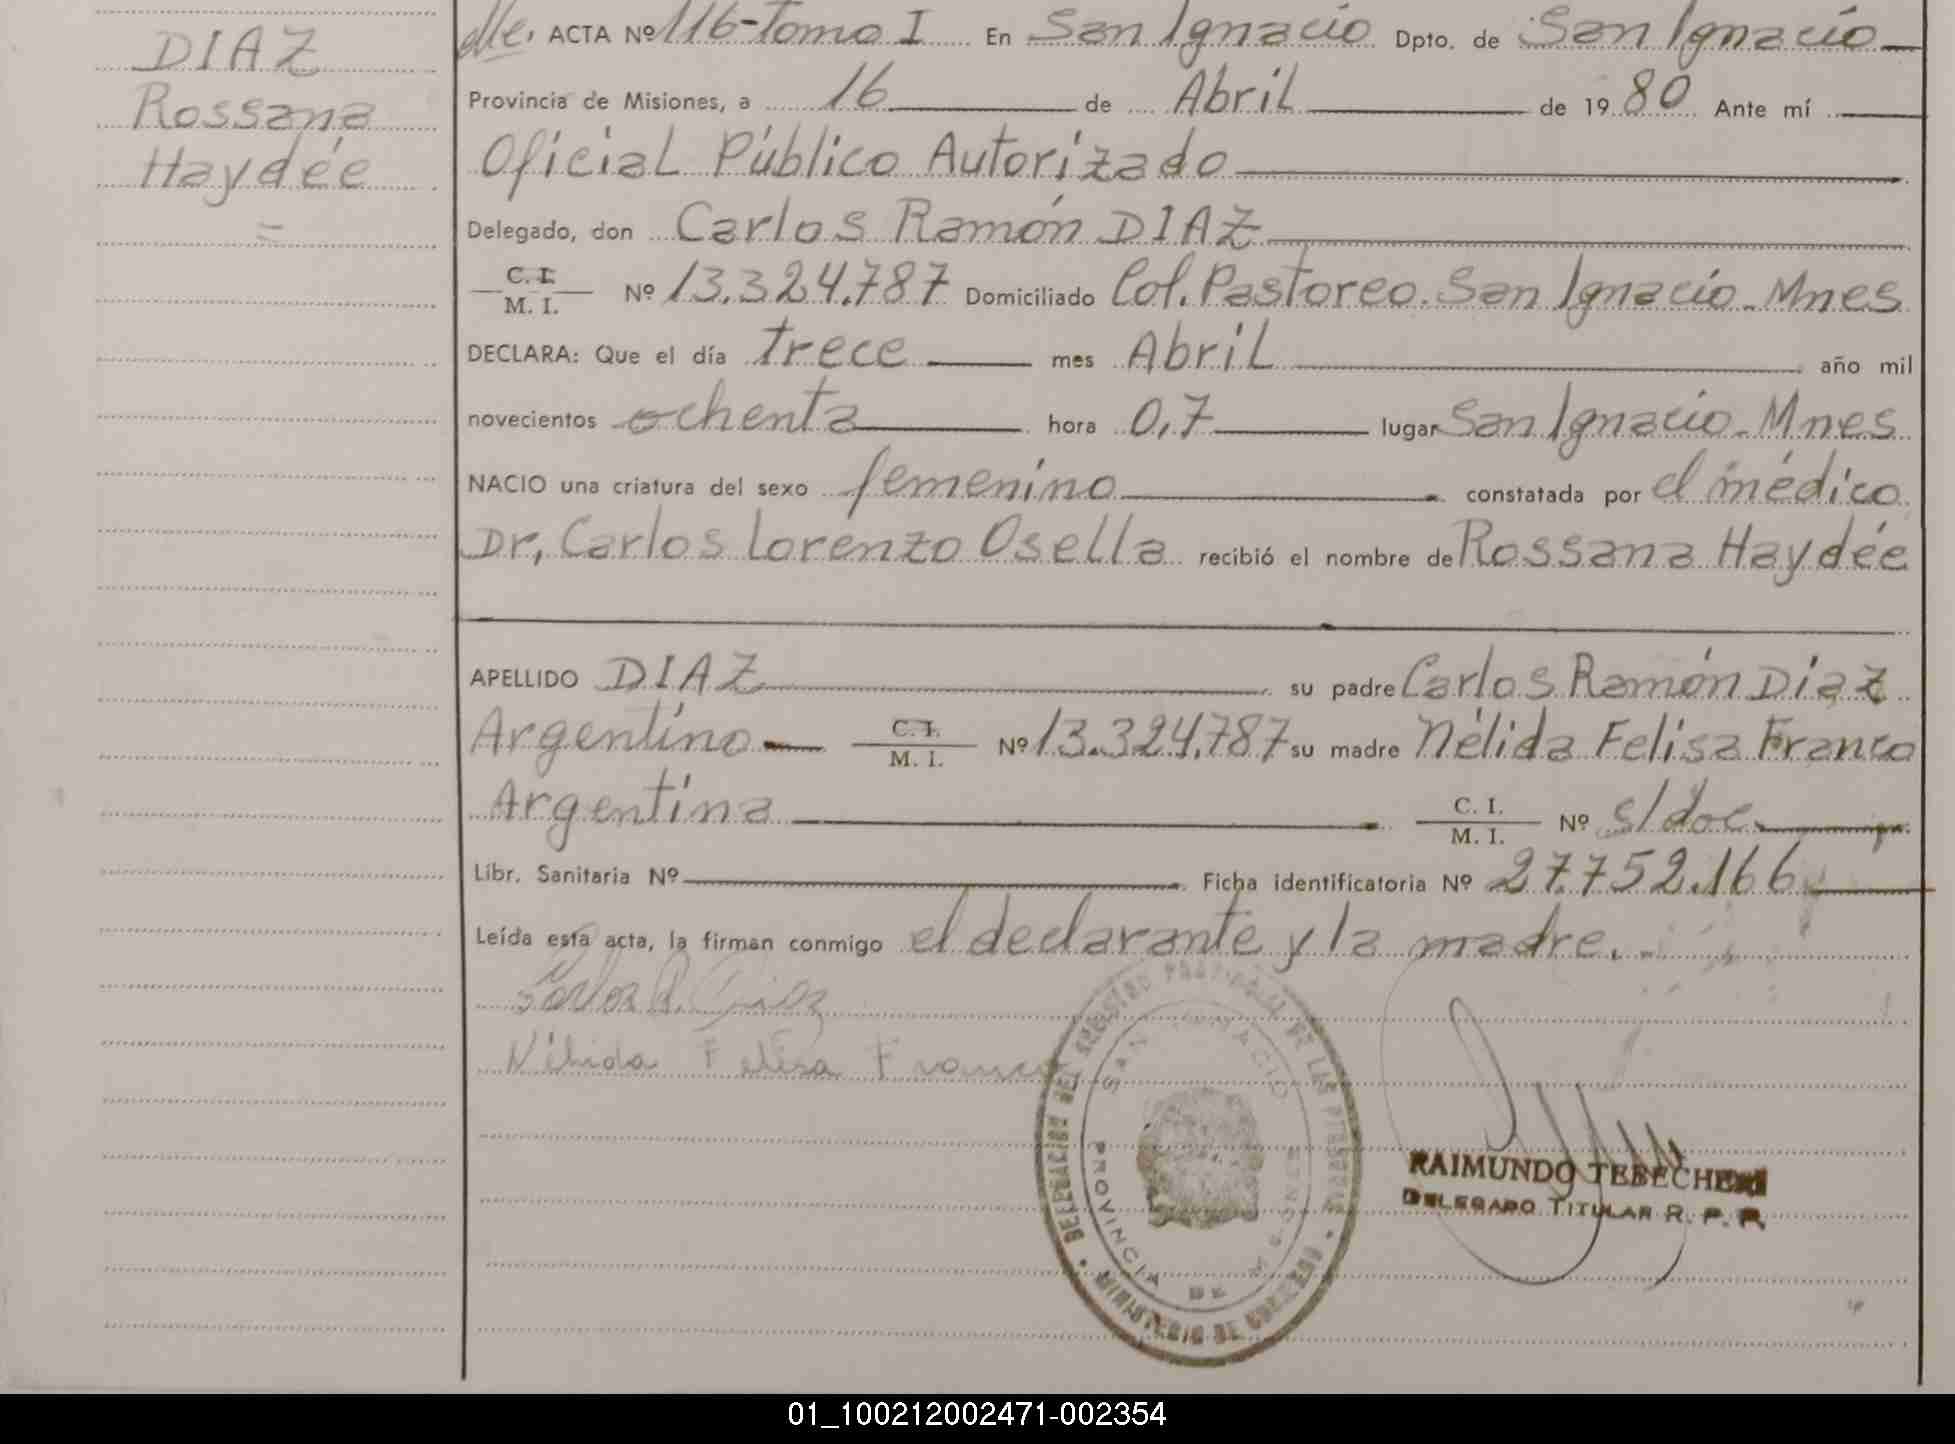 DIAZ
Rossana
Haydée
ACTA Nº 116-Tomo I En San Ignacio Dpto. de San Ignacio
Provincia de Misiones, a 16 de Abril de 1980 Ante mí
Oficial Público Autorizado
Delegado, don Carlos Ramón DIAZ
C. I.
M. I. Nº 13.324.787 Domiciliado Col. Pastoreo. San Ignacio - Mnes
DECLARA: Que el día trece mes Abril año mil
novecientos ochenta hora 0,7 lugar San Ignacio - Mnes
NACIO una criatura del sexo femenino constatada por el médico
Dr, Carlos Lorenzo Osella recibió el nombre de Rossana Haydée
APELLIDO DIAZ su padre Carlos Ramón Díaz
Argentino C. I.
M. I. Nº 13.324.787 su madre Nélida Felisa Franco
Argentina C. I.
M. I. Nº s/doc.
Libr. Sanitaria Nº Ficha identificatoria Nº 27.752.166
Leída esta acta, la firman conmigo el declarante y la madre.
Carlos R. Diaz
Nélida Felisa Franco
DELEGACION DEL REGISTRO PROVINCIAL DE LAS PERSONAS
SAN IGNACIO
PROVINCIA DE MISIONES
MINISTERIO DE GOBIERNO
RAIMUNDO TEBECHERI
DELEGADO TITULAR R. P. P.
01_100212002471-002354